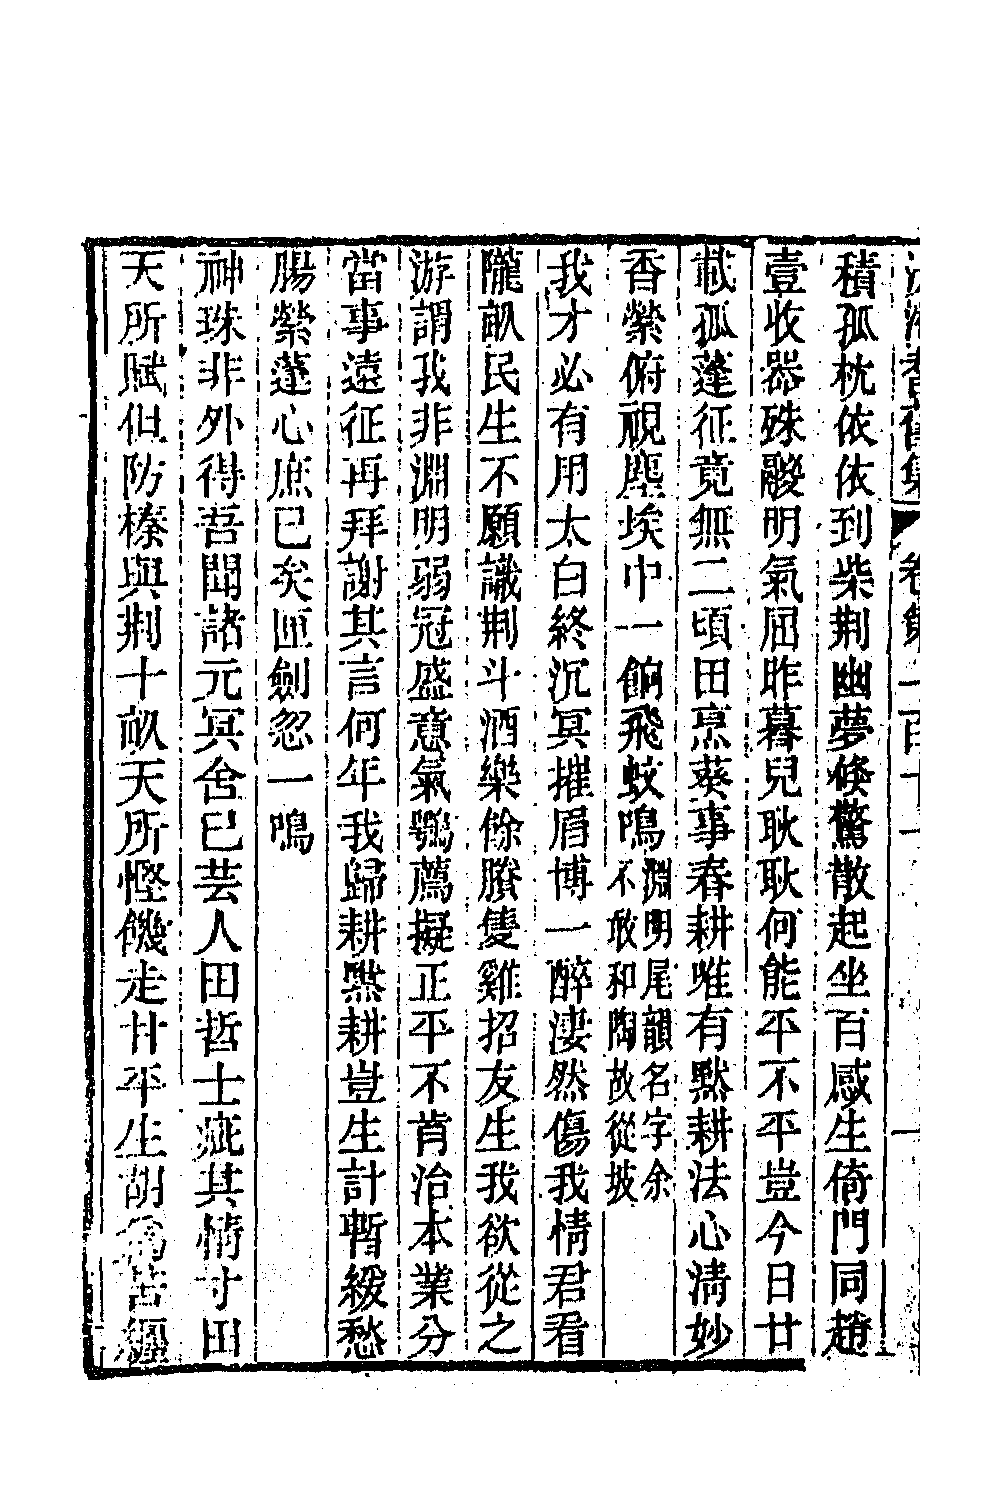 沅湘耆舊集 卷第一百十一 一
積孤枕依依到柴荆幽夢倏驚散起坐百感生倚門同趙
壹收器殊鬷明氣屈昨暮兒耿耿何能平不平豈今日廿
載孤蓬征竟無二頃田烹葵事春耕唯有默耕法心淸妙
香縈俯視塵埃中一餉飛蚊鳴淵明尾韻名字余
不敢和陶故從坡
我才必有用太白終沉冥摧眉博一醉淒然傷我情君看
隴畝民生不願識荆斗酒樂餘賸隻雞招友生我欲從之
游謂我非淵明弱冠盛意氣鶚薦擬正平不肯治本業分
當事遠征再拜謝其言何年我歸耕黙耕豈生計暫緩愁
腸縈蓬心庶已矣匣劍忽一鳴
神珠非外得吾聞諸元冥舍已芸人田哲士疵其情寸田
天所賦但防榛與荆十畝天所慳饑走甘平生胡爲苦纏